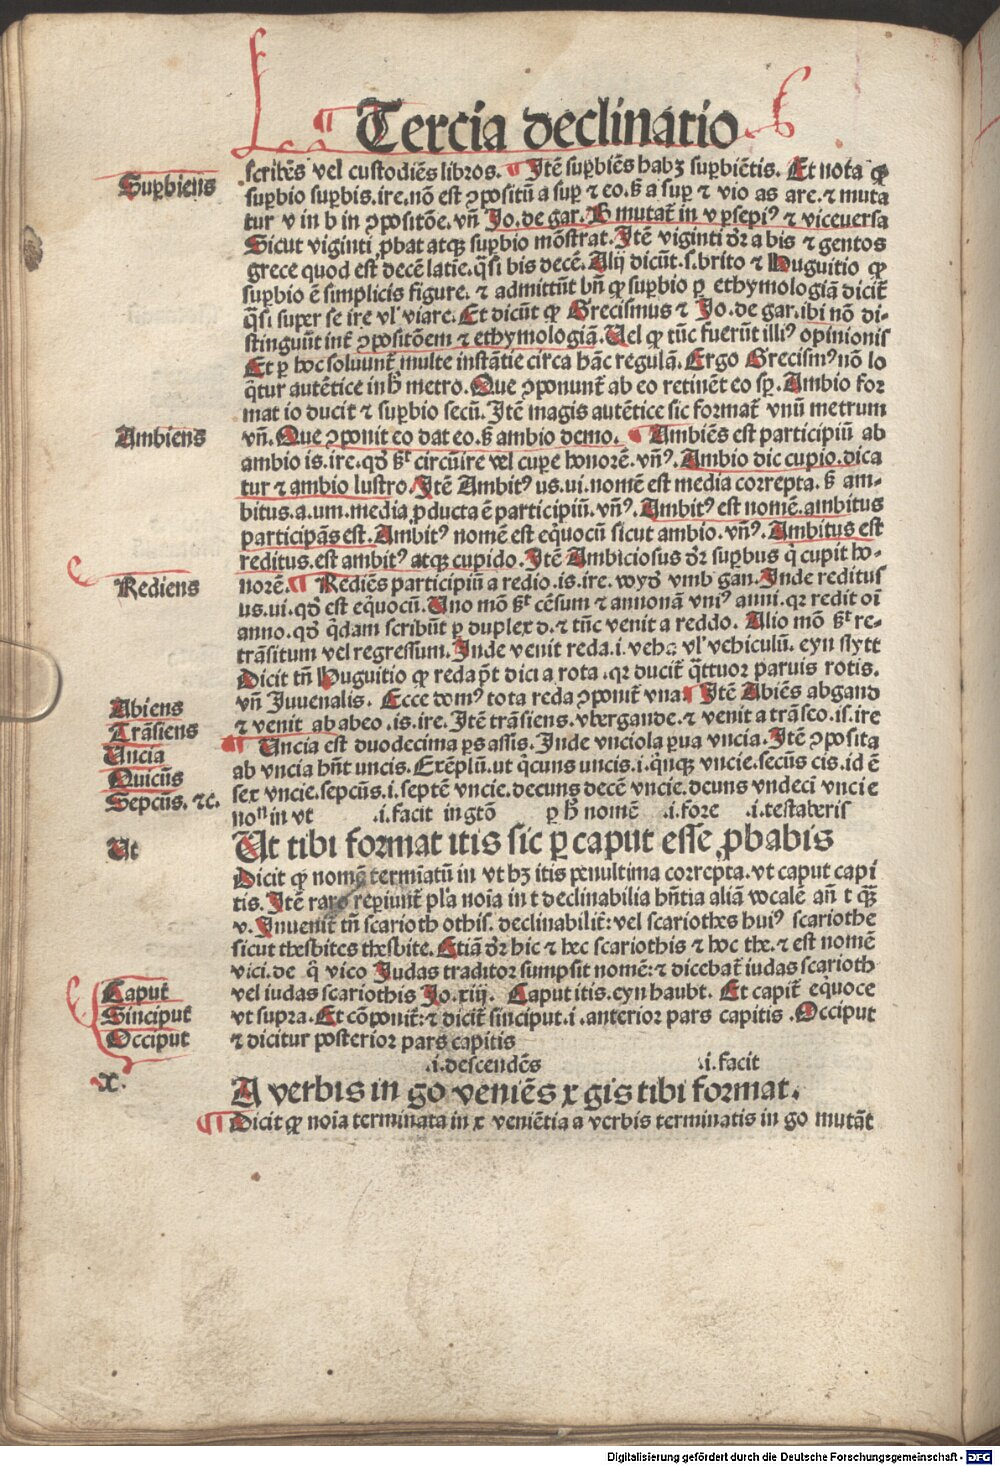 Tercia declinatio
scribẽs vel custodiẽs libros. ¶ Itẽ suꝑbiẽs habꝫ suꝑbiẽtis. Et nota ꝙ
Suꝑbiens
suꝑbio suꝑbis.ire.nõ est ꝯpositũ a suꝑ ⁊ eo. ß a suꝑ ⁊ vio as are.⁊ muta
tur v in b in ꝯpositõe. vñ Jo. de gar. B mutat̃ in v ꝑsepiꝰ ⁊ viceuersa
Sicut viginti ꝓbat atqꝫ suꝑbio mõstrat. Itẽ viginti dr̃ a bis ⁊ gentos
grece quod est decẽ latie. q̃si bis decẽ. Alij dicũt .s. brito ⁊ Huguitio ꝙ
suꝑbio ẽ simplicis figure. ⁊ admittũt bñ ꝙ suꝑbio ꝑ ethymologiã dicit̃
q̃si super se ire vl' viare. Et dicũt ꝙ Grecismus ⁊ Jo. de gar. ibi nõ di-
stinguũt int̃ ꝯpositõem ⁊ ethymologiã. Uel ꝙ tũc fuerũt illiꝰ opinionis
Et ꝑ hoc soluunt̃ multe instãtie circa hãc regulã. Ergo Grecismꝰ nõ lo
q̃tur autẽtice in h̃ metro. Que ꝯponunt̃ ab eo retinẽt eo sꝑ. Ambio for
mat io ducit ⁊ suꝑbio secũ. Itẽ magis autẽtice sic format̃ vnũ metrum
Ambiens
vñ. Que ꝯponit eo dat eo. ß ambio demo. ¶ Ambiẽs est participiũ ab
ambio is.ire. qd' ßt circũire vel cupe honorẽ. vñꝰ. Ambio dic cupio. dica
tur ⁊ ambio lustro. Itẽ Ambitꝰ us.ui. nomẽ est media correpta. ß am-
bitus.a.um. media ꝓducta ẽ participiũ. vñꝰ. Ambitꝰ est nomẽ. ambitus
participãs est. Ambitꝰ nomẽ est eq̃uocũ sicut ambio. vñꝰ. Ambitus est
reditus. est ambitꝰ atqꝫ cupido. Itẽ Ambiciosus dr̃ suꝑbus q̃ cupit ho-
Rediens
norẽ. ¶ Rediẽs participiũ a redio.is.ire. wyd' vmb gan. Inde reditus
us.ui. qd' est eq̃uocũ. Uno mõ ßt cẽsum ⁊ annonã vniꝰ anni. qr redit oĩ
anno. qd' q̃dam scribũt ꝑ duplex d. ⁊ tũc venit a reddo. Alio mõ ßt re-
trãsitum vel regressum. Inde venit reda .i. veha vl' vehiculũ. eyn slytt
Dicit tñ Huguitio ꝙ reda pt̃ dici a rota. qr ducit̃ q̃ttuor paruis rotis.
vñ Juuenalis. Ecce domꝰ tota reda ꝯponit̃ vna. ¶ Itẽ Abiẽs abgand
Abiens
⁊ venit ab abeo.is.ire. Itẽ trãsiens. vbergande. ⁊ venit a trãseo.is.ire
Trãsiens
¶ Uncia est duodecima ꝑs assis. Inde vnciola ꝑua vncia. Itẽ ꝯposita
Uncia
ab vncia hñt uncis. Exẽplũ. ut q̃cuns uncis .i. q̃nqꝫ vncie. secũs cis. id ẽ
Quicũs
sex vncie. sepcũs .i. septẽ vncie. decuns decẽ vncie. deuns vndeci vncie
Sepcũs. ⁊c.
non in vt .i. facit in gtõ ꝑ h̃ nomẽ .i. fore .i. testaberis
Ut
Ut tibi format itis sic ꝑ caput esse ꝓbabis
Dicit ꝙ nomẽ termĩatũ in vt hꝫ itis penultima correpta. vt caput capi
tis. Itẽ raro reꝑiunt̃ pl'a noĩa in t declinabilia hñtia aliã vocalẽ añ t q̃ꝫ
v. Inuenit̃ tñ scarioth othis. declinabilit̃: vel scariothes huiꝰ scariothe
sicut thesbites thesbite. Etiã dr̃ hic ⁊ hec scariothis ⁊ hoc the. ⁊ est nomẽ
vici. de q̃ vico Judas traditor sumpsit nomẽ: ⁊ dicebat̃ iudas scarioth
Caput
vel iudas scariothis Jo. xiij. Caput itis. eyn haubt. Et capit̃ eq̃uoce
Sinciput
vt supra. Et cõponit̃: ⁊ dicit̃ sinciput .i. anterior pars capitis. Occiput
Occiput
⁊ dicitur posterior pars capitis
.i. descendẽs .i. facit
x.
A verbis in go veniẽs x gis tibi format.
¶ Dicit ꝙ noĩa terminata in x veniẽtia a verbis terminatis in go mutãt
Digitalisierung gefördert durch die Deutsche Forschungsgemeinschaft - DFG